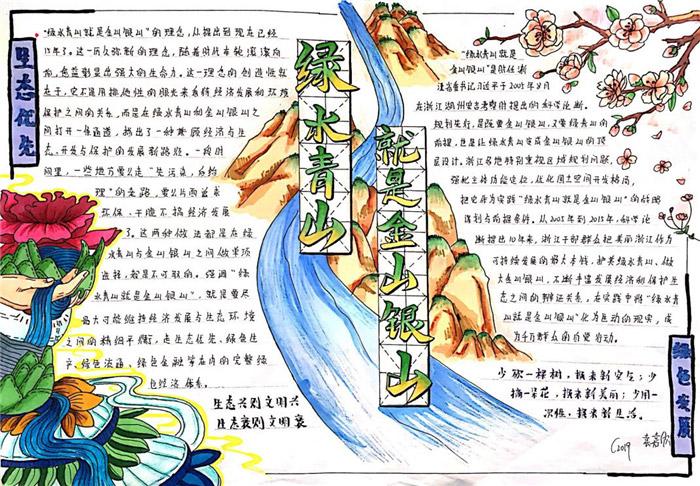 生态优先
"绿水青山就是金山银山"的理念,从提出到现在已经
15年了。这一历久弥新的理念,随着时代车轮滚滚向
前,愈益彰显出强大的生命力。这一理念的创造性就
在于,它不是用
眼光来看待经济发展和环境
保护之间的关系,而是在绿水青山和金山银山之
间打开一条通道,提出了一种兼顾经济与生
态、开发与保护的发展新路径。一段时
间里,一些地方要么走"先污染,后治
理"的老路,要么片面追求
环保,干脆不搞经济发展
了。这两种做法都是在绿
水青山与金山银山之间做单项
选择,都是不可取的。强调"绿
水青山就是金山银山",就是要尽
最大可能维持经济发展与生态环境
之间的精细平衡,走生态优先、绿色生
产、绿色流通、绿色金融等在内的完整绿
色经济体系。
生态兴则文明兴
生态衰则文明衰
绿水青山
就是金山银山
"绿水青山就是
金山银山"是时任浙
江省委书记习近平于2005年8月
在浙江湖州安吉考察时提出的科学论断。
规划先行,是既要金山银山,又要绿水青山的
前提,也是让绿水青山变成金山银山的顶
层设计。浙江各地特别重视区域规划问题,
强化主体功能定位,优化国土空间开发格局,
把它作为实践"绿水青山就是金山银山"的战略
谋划与前提条件。从2005年到2015年,科学论
断提出10年来,浙江干部群众把美丽浙江作为
可持续发展的最大本钱,护美绿水青山、做
大金山银山,不断丰富发展经济和保护生
态之间的辩证关系,在实践中将"绿水青
山就是金山银山"化为生动的现实,成
为千万群众的自觉行动。
少砍一棵树,换来新空气;少
摘一朵花,换来新美丽;少用一
次性,换来新生活。
绿色发展
C2019